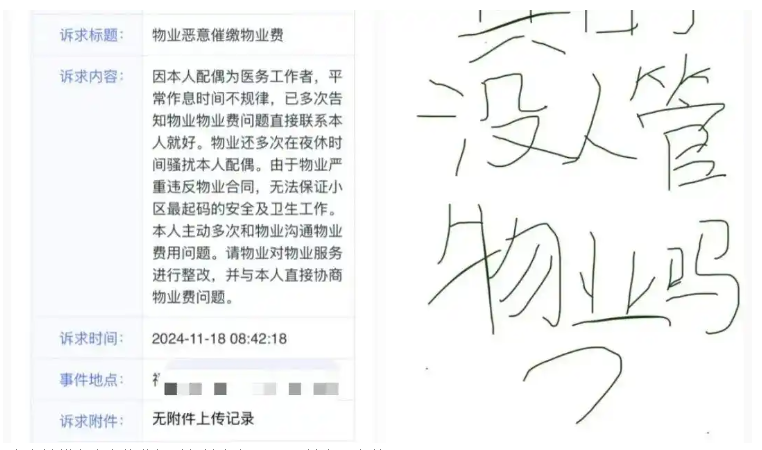 诉求标题: 物业恶意催缴物业费
诉求内容: 因本人配偶为医务工作者，平
常作息时间不规律，已多次告
知物业物业费问题直接联系本
人就好。物业还多次在夜休时
间骚扰本人配偶。由于物业严
重违反物业合同，无法保证小
区最起码的安全及卫生工作。
本人主动多次和物业沟通物业
费用问题。请物业对物业服务
进行整改，并与本人直接协商
物业费问题。
诉求时间: 2024-11-18 08:42:18
事件地点:
诉求附件: 无附件上传记录
没人管
物业吗